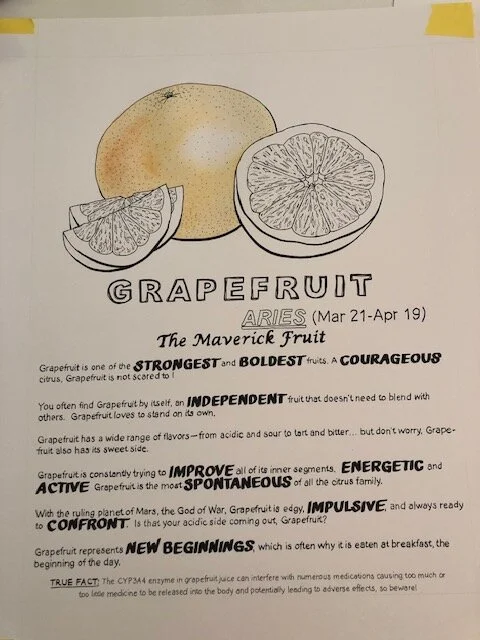 GRAPEFRUIT
ARIES (Mar 21-Apr 19)
The Maverick Fruit
Grapefruit is one of the STRONGEST and BOLDEST fruits. A COURAGEOUS
citrus, Grapefruit is not scared to !
You often find Grapefruit by itself, an INDEPENDENT fruit that doesn't need to blend with
others. Grapefruit loves to stand on its own.
Grapefruit has a wide range of flavors—from acidic and sour to tart and bitter... but don't worry, Grape-
fruit also has its sweet side.
Grapefruit is constantly trying to IMPROVE all of its inner segments. ENERGETIC and
ACTIVE Grapefruit is the most SPONTANEOUS of all the citrus family.
With the ruling planet of Mars, the God of War, Grapefruit is edgy, IMPULSIVE, and always ready
to CONFRONT. Is that your acidic side coming out, Grapefruit?
Grapefruit represents NEW BEGINNINGS, which is often why it is eaten at breakfast, the
beginning of the day.
TRUE FACT: The CYP3A4 enzyme in grapefruit juice can interfere with numerous medications causing too much or
too little medicine to be released into the body and potentially leading to adverse effects, so beware!